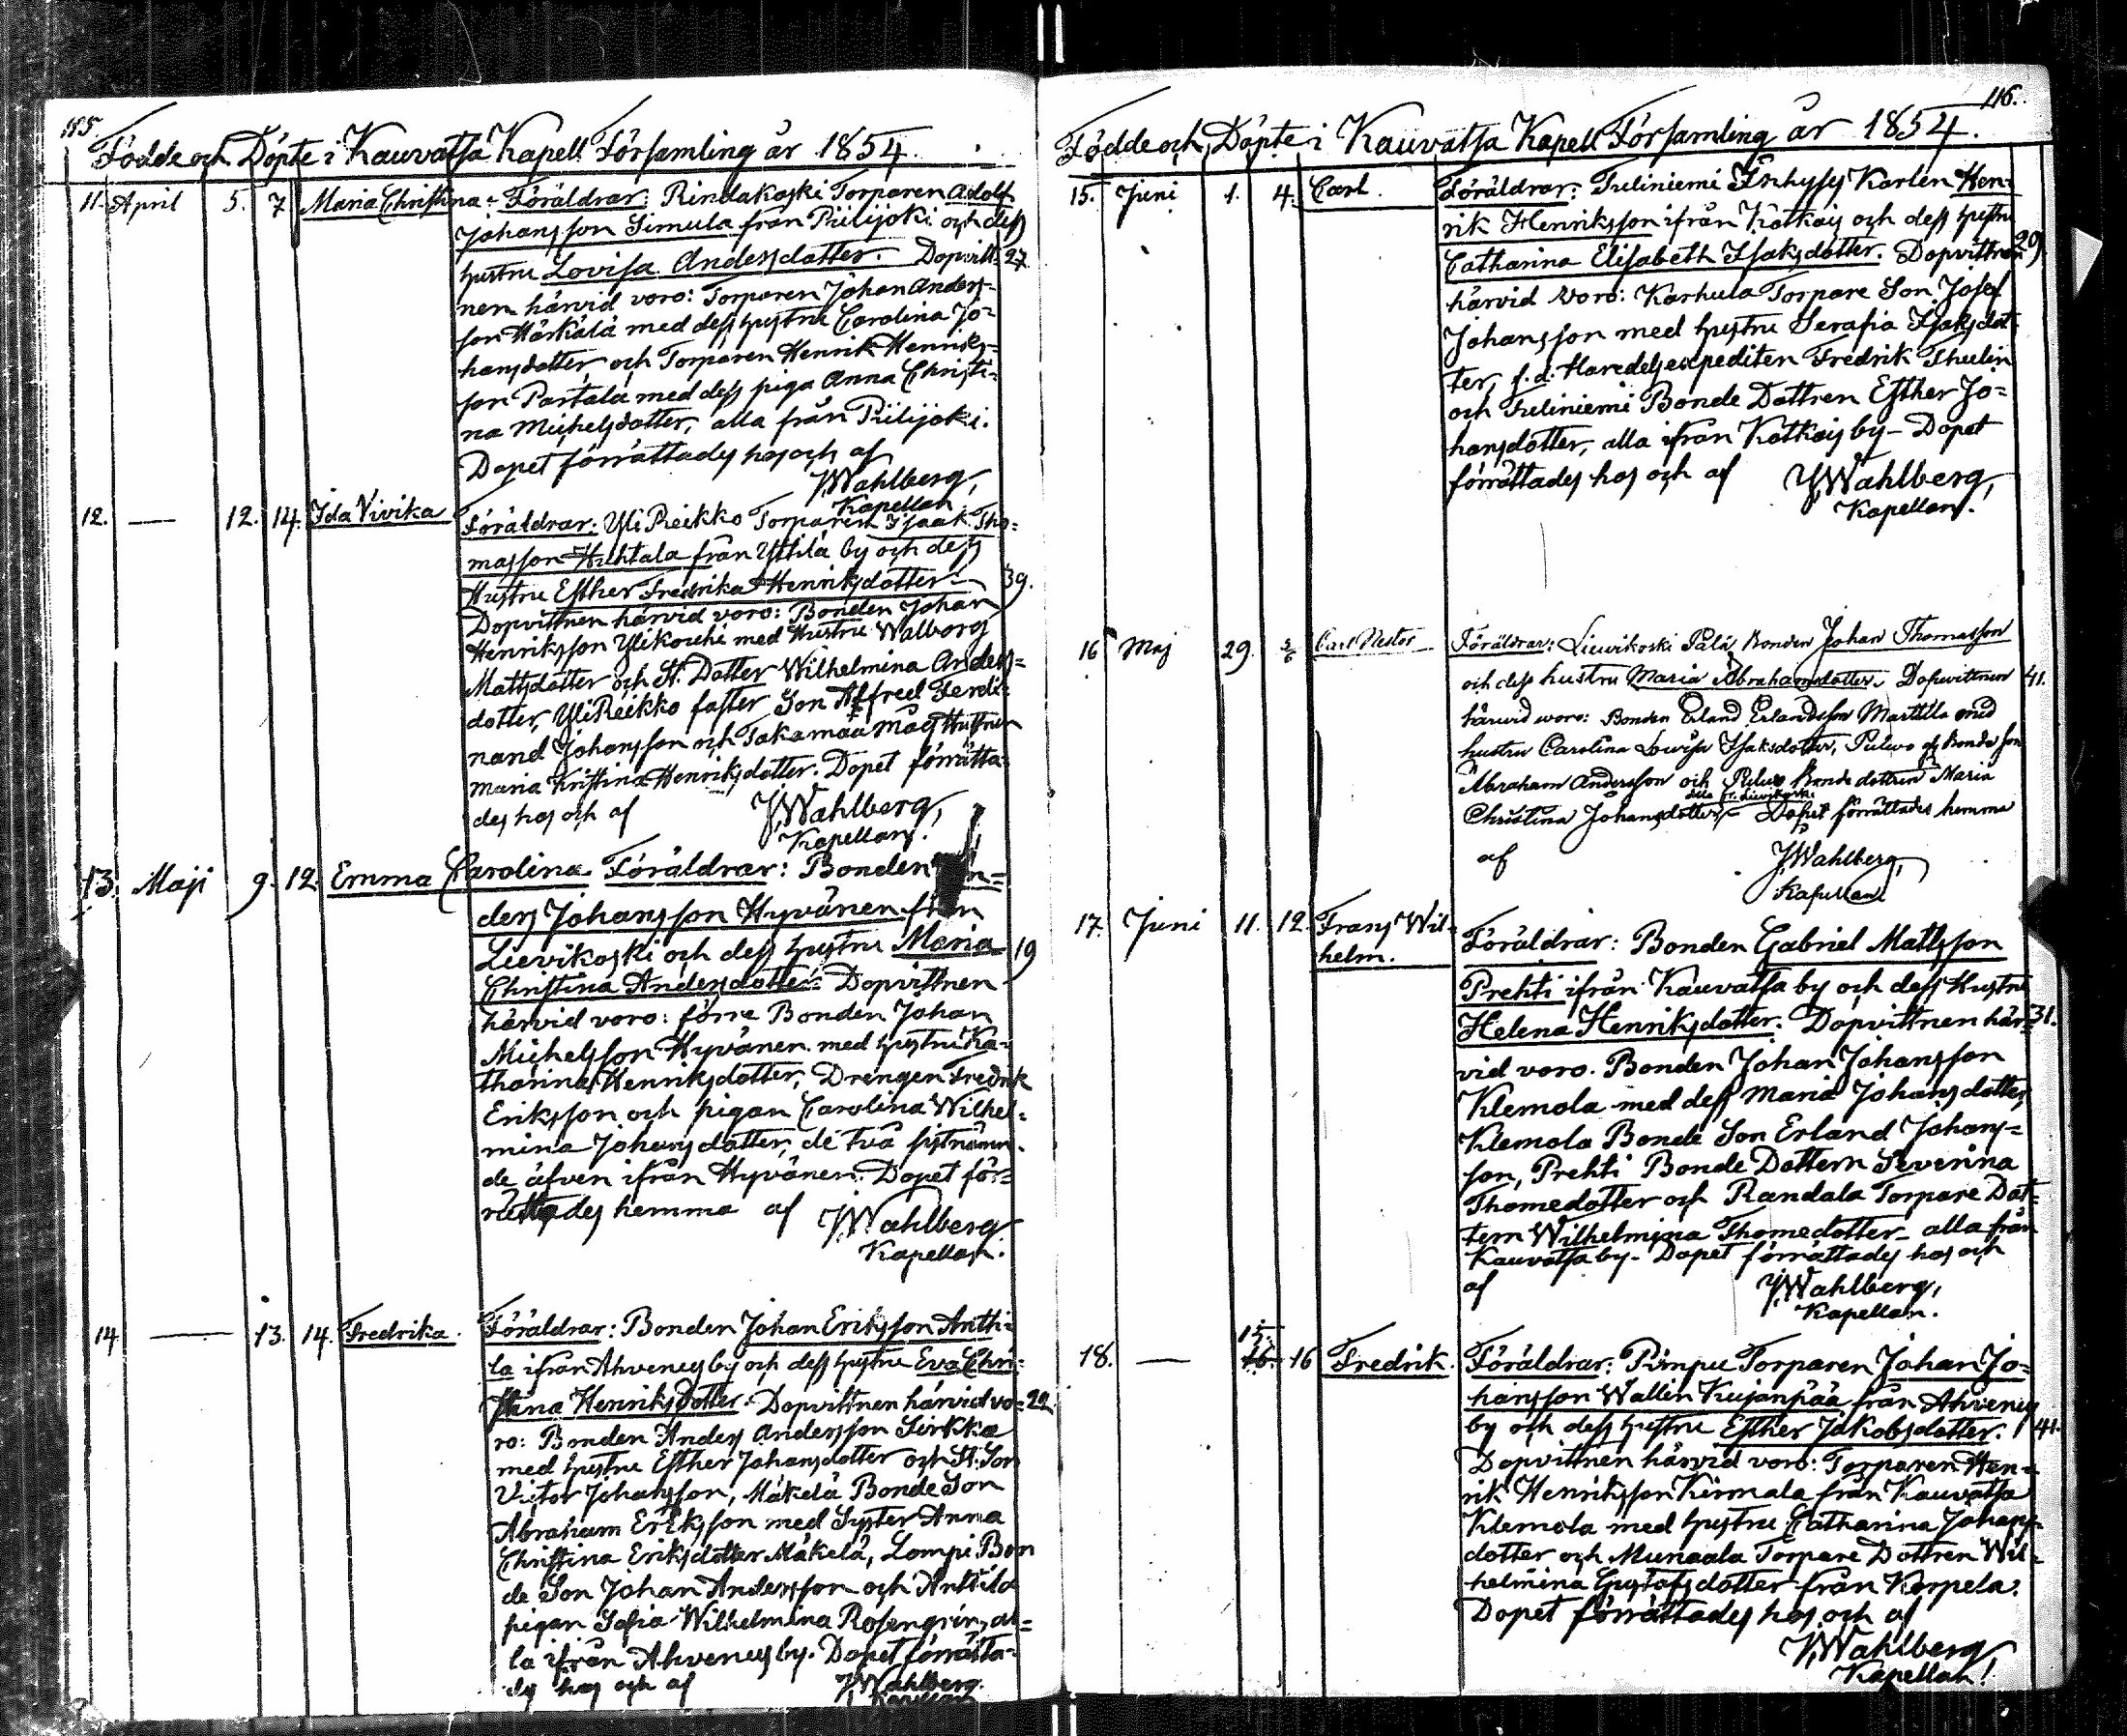 115.
Födde och Döpte i Kauvatsa Kapell Församling år 1854.
11. April 5. 7 Maria Christina. Föräldrar: Rindakoski Torparen Adolf
Johansson Simula från Piilijoki och dess
hustru Lovisa Andersdotter. Dopvitt= 27
nen härvid voro: Torparen Johan Anders=
son Härkälä med dess hustru Carolina Jo=
hansdotter och Torparen Henrik Henriks=
son Partala med dess piga Anna Christi=
na Michelsdotter, alla från Piilijoki.
Dopet förrättades hos och af
JWahlberg,
Kapellan
12. — 12. 14. Ida Vivika Föräldrar: Yli Reikko Torparen Isaak Tho=
masson Huhtala från Yttilä by och dess
Hustru Esther Fredrika Henriksdotter 39.
Dopvittnen härvid voro: Bonden Johan
Henriksson Ylikouhi med Hustru Walborg
Mattsdotter och St. Dotter Wilhelmina Anders=
dotter, Yli Reikko foster Son Alfred Ferdi=
nand Johansson och Takamaa Måg Hustrun
Maria Kristina Henriksdotter. Dopet förrätta=
des hos och af JWahlberg,
Kapellan.
13. Maji 9. 12. Emma Carolina. Föräldrar: Bonden An=
ders Johansson Hyvönen från
Lievikoski och dess hustru Maria 19
Christina Andersdotter. Dopvittnen
härvid voro: förre Bonden Johan
Michelsson Hyvönen med hustru Ka=
tharina Henriksdotter, Drengen Fredrik
Eriksson och pigan Carolina Wilhel=
mina Johansdotter, de två sistnämn=
de äfven ifrån Hyvönen. Dopet för=
rättades hemma af JWahlberg
Kapellan.
14. — 13. 14. Fredrika. Föräldrar: Bonden Johan Eriksson Antti=
la ifrån Ahvenus by och dess hustru Eva Chri=
stina Henriksdotter. Dopvittnen härvid vo= 22.
ro: Bonden Anders Andersson Sirkka
med hustru Esther Johansdotter och St. Son
Victor Johansson, Mäkelä Bonde Son
Abraham Eriksson med Syster Anna
Christina Eriksdotter Mäkelä, Lompi Bon
de Son Johan Andersson och Anttila
pigan Sofia Wilhelmina Rosengrén, al=
la ifrån Ahvenus by. Dopet förrätta=
des hos och af JWahlberg.
Kapellan
116.
Födde och Döpte i Kauvatsa Kapell Församling år 1854.
15. Juni 1. 4. Carl. Föräldrar: Tuliniemi Inhyses Karlen Hen=
rik Henriksson ifrån Kotkais och dess hustru
Catharina Elisabeth Isaksdotter. Dopvittnen 29.
härvid voro: Karhula Torpare Son Josef
Johansson med hustru Serafia Isaksdot=
ter, f.d. Handelsexpediten Fredrik Thulin
och Tuliniemi Bonde Dottren Esther Jo=
hansdotter, alla ifrån Kotkais by. Dopet
förrättades hos och af JWahlberg,
Kapellan.
16 Maj 29. 5/6 Carl Nestor Föräldrar: Lievikoski Pälä Bonden Johan Thomasson
och dess hustru Maria Abrahamsdotter. Dopvittnen 41.
härvid woro: Bonden Erland Erlandsson Marttila med
hustru Carolina Lovisa Isaksdotter, Puluvo Bonde son
Abraham Andersson och Bonde dottren Maria
Christina Johansdotter, alla fr. Lievikoski. Dopet förrättades hemma
af JWahlberg,
Kapellan
17. Juni 11. 12. Frans Wil=
helm. Föräldrar: Bonden Gabriel Mattsson
Prehti ifrån Kauvatsa by och dess Hustru
Helena Henriksdotter. Dopvittnen här= 31.
vid voro. Bonden Johan Johansson
Klemola med dess Maria Johansdotter,
Klemola Bonde Son Erland Johans=
son, Prehti Bonde Dottern Severina
Thomedotter och Randala Torpare Dot=
tern Wilhelmina Thomedotter alla från
Kauvatsa by. Dopet förrättades hos och
af JWahlberg,
Kapellan.
15.
18. — 16. 16 Fredrik. Föräldrar: Pimpu Torparen Johan Jo=
hansson Wallin Kujanpää från Ahvenus
by och dess hustru Esther Jakobsdotter. 41.
Dopvittnen härvid voro: Torparen Hen=
rik Henriksson Kirmala från Kauvatsa
Klemola med hustru Catharina Johans=
dotter och Munaala Torpare Dottren Wil=
helmina Gustafsdotter från Korpela.
Dopet förrättades hos och af
JWahlberg
Kapellan!